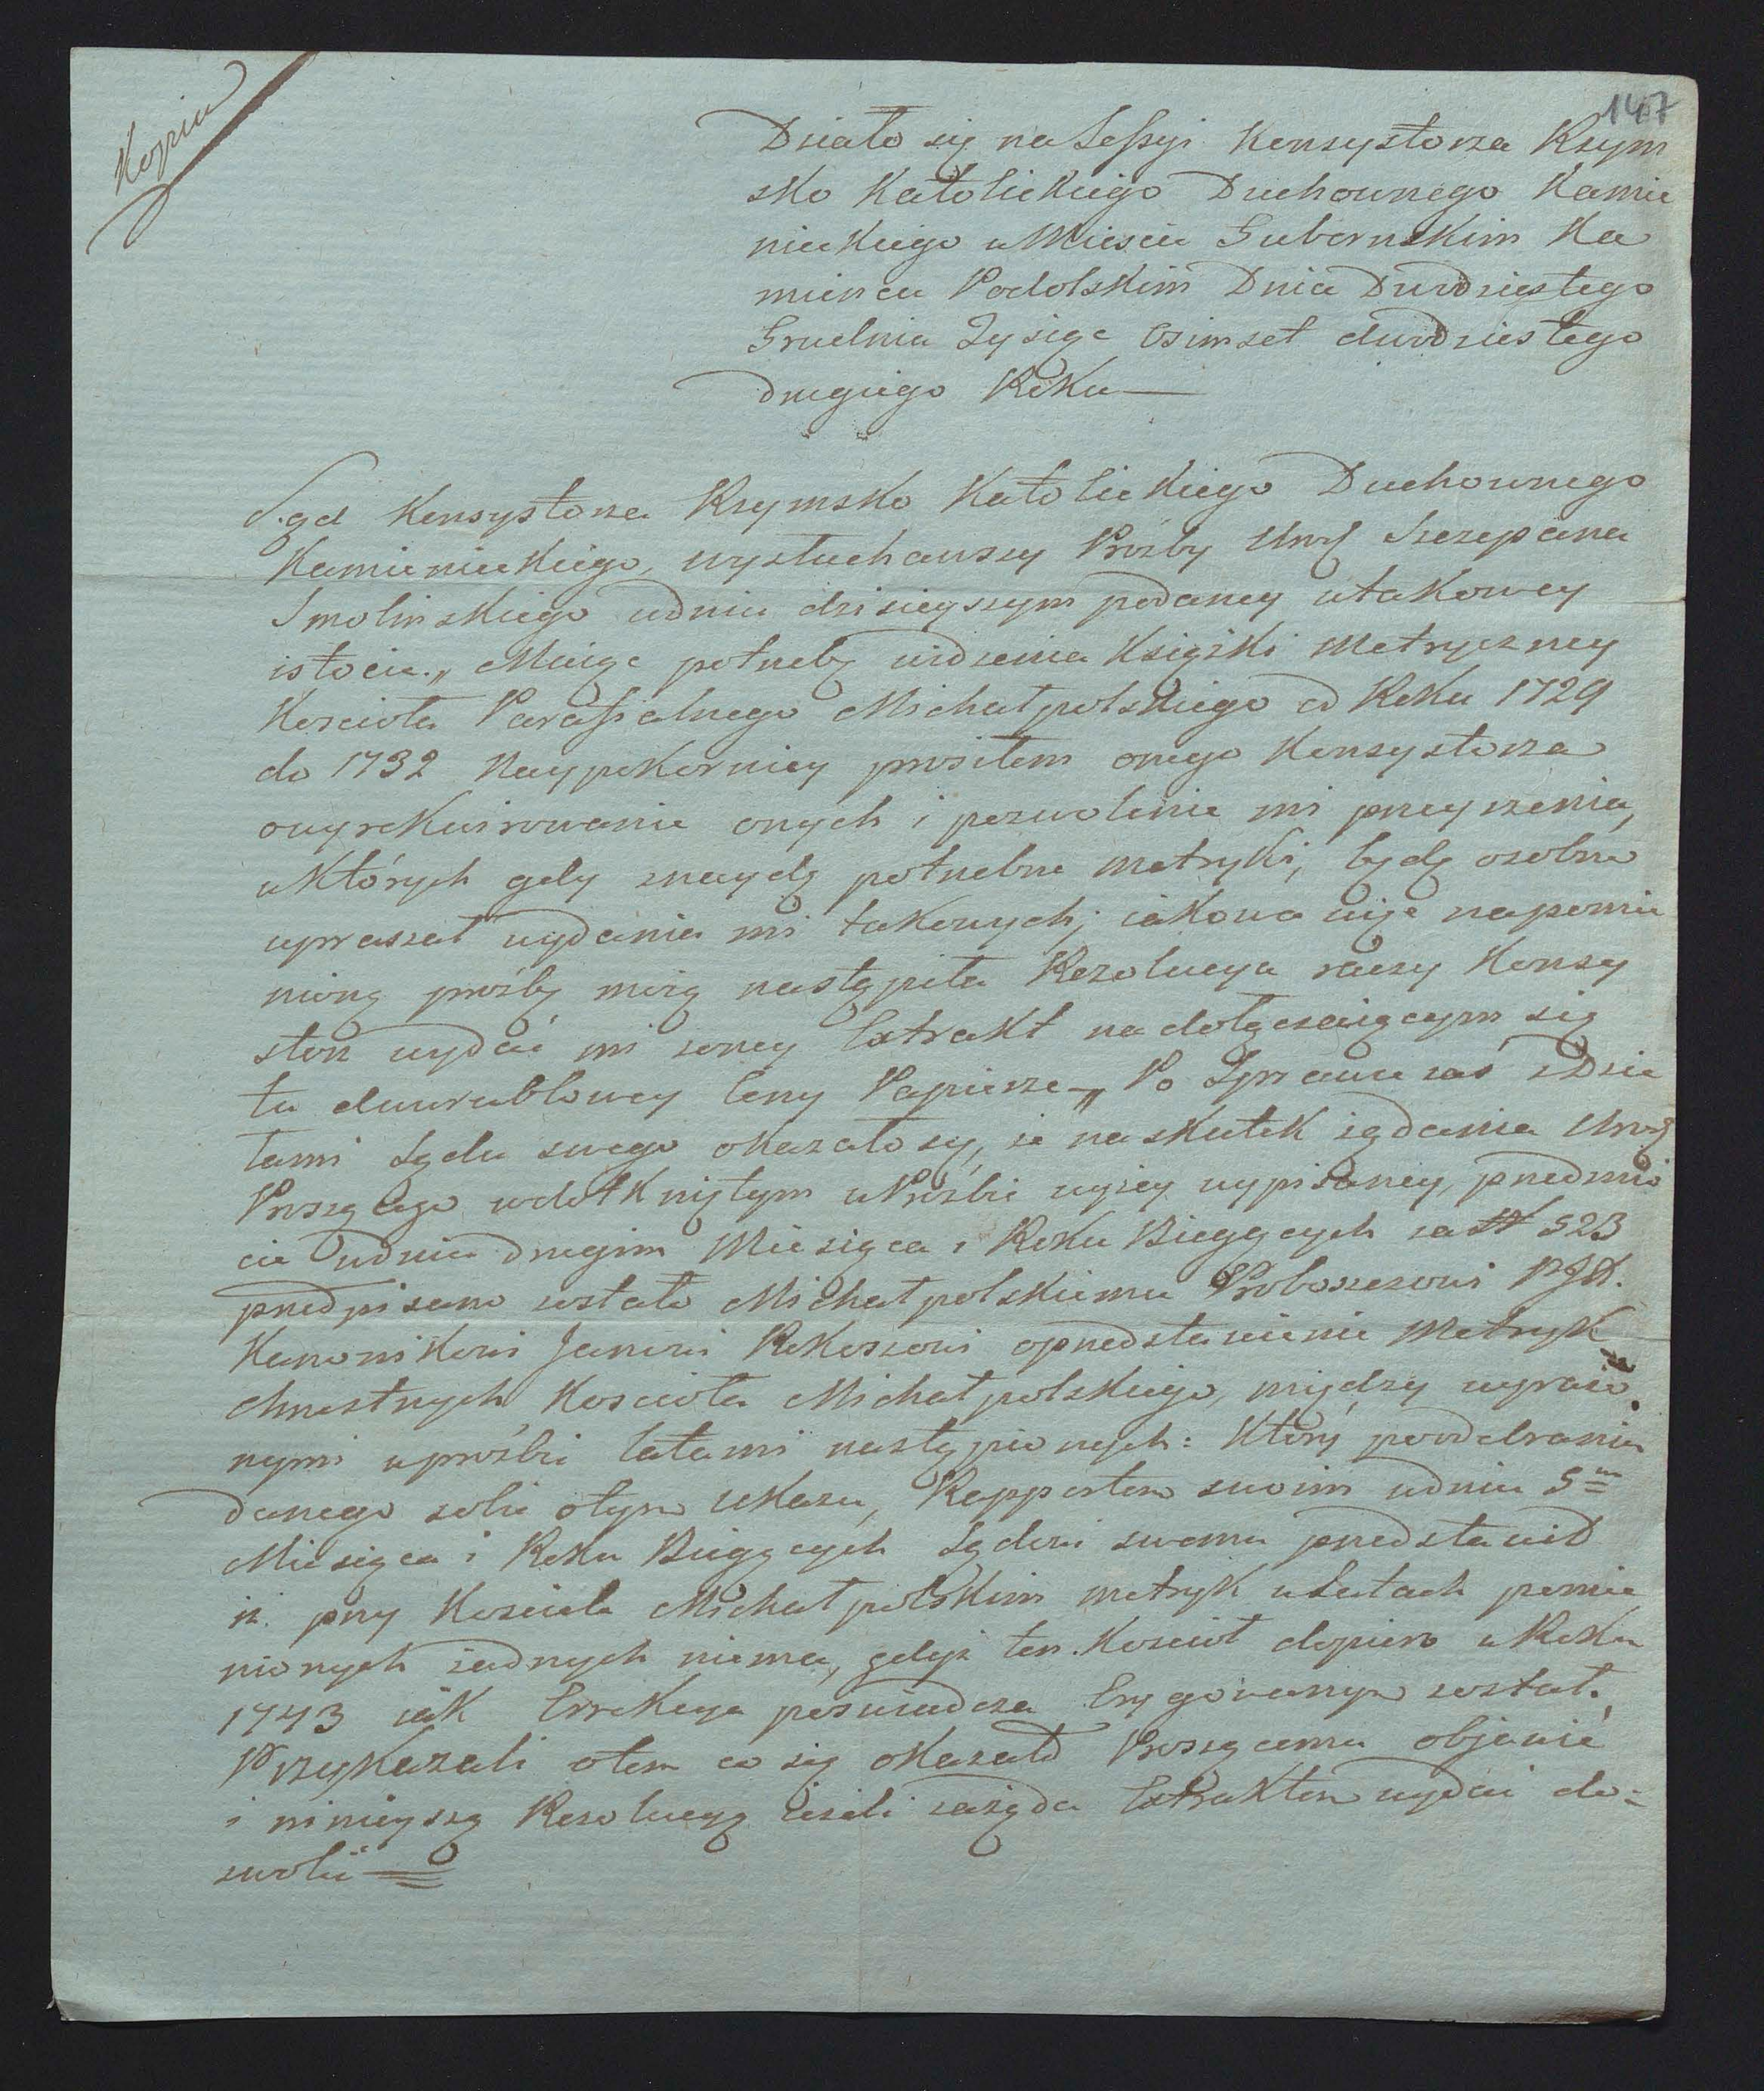 Kopia
147
Działo się na Sessyi Konsystorza Rzym
sko Katolickiego Duchownego Kamie
nieckiego w Miescie Gubernskim Ka
miencu Podolskim Dnia Dwudziestego
Grudnia Tysiąc Osimset dwudziestego
drugiego Roku —
Sąd Konsystorza Rzymsko Katolickiego Duchownego
Kamienieckiego, wysłuchawszy Prożby Urod Szczepana
Smolinskiego w dniu dzisieyszym podaney w takowey
istocie „ Maiąc potrzebę widzenia Książki Metryczney
Koscioła Parafialnego Michałpolskiego od Roku 1729
do 1732 Naypokorniey prosiłem onego Konsystorza
o wyrekwirowanie onych i pozwolenie mi przeyrzenia,
w których gdy znaydę potrzebne Metryki, będę osobno
upraszał wydania mi takowych; iakowa więc na pomie
nioną prożbę moią nastąpiła Rezolucya raczy Konsy
storz wydać mi z oney Extrakt na dołączaiącym się
tu dwurublowey Ceny Papierze „ Po Sprawie zaś z Dzie
łami Sądu swego okazało się, że na skutek żądania Urod
Proszącego w dotkniętym w Prożbie wyżey wypisaney, przedmio
cie w dniu drugim Miesiąca i Roku Bieżących za N 523
przedpisano zostało Michałpolskiemu Proboszczowi
Kanonikowi Janowi Rokoszowi o przedstawienie Metryk
chrzestnych Koscioła Michałpolskiego, między wyrażo
nymi w prożbie latami nastąpionych: Który po odebraniu
danego sobie o tym Ukazu, Rapportem swoim w dniu 5m
Miesiąca i Roku Bieżących Sądowi swemu przedstawił
iż przy Kosciele Michałpolskim metryk w Latach pomie
nionych żadnych niema, gdyż ten Kosciół dopiero w Roku
1743 iak Errekcya poswiadcza Erygowanym został.
Przykazali o tem co się okazało Proszącemu objawić
i ninieyszą Rezolucyą ieżeli zażąda Extraktem wydać do=
zwolić